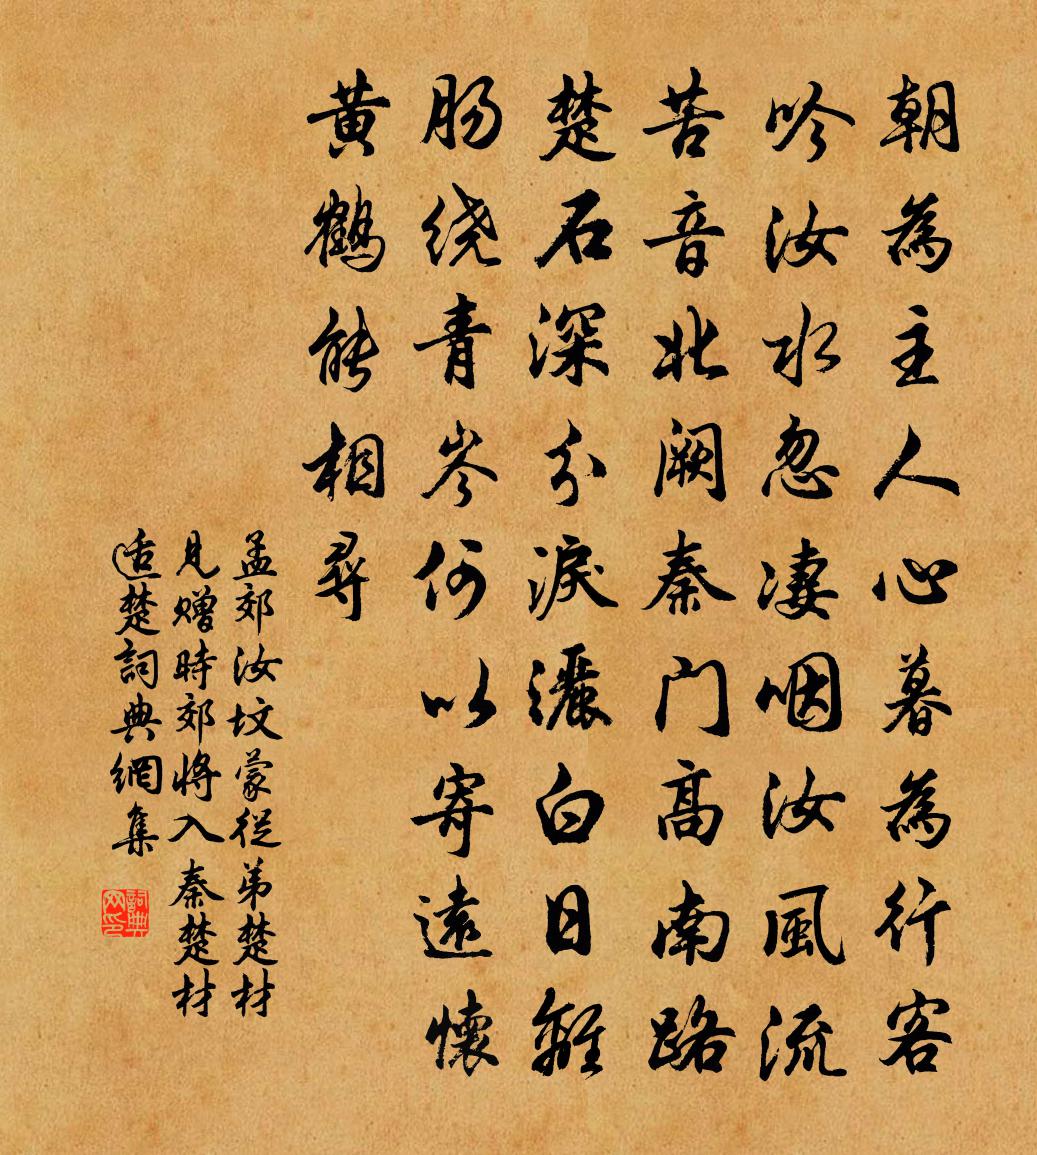 朝為主人心暮為行客
吟汝水忽凄咽汝風流
苦音北阙秦门高南路
楚石深分淚灑白日離
肠绕青岑何以寄遠懷
黄鶴能相尋
孟郊汝坟蒙從弟楚材
见赠時郊將入秦楚材
适楚詞典網集
詞典网印